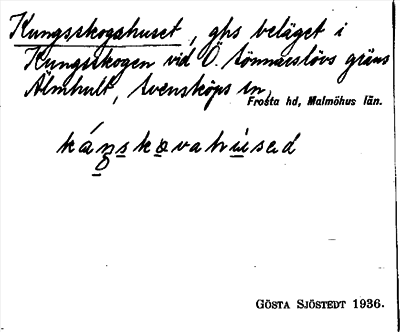 Kungsskogshuset, ghs beläget i
Kungsskogen vid Ö. Sönnarslövs gräns
Älmhult, Svensköps sn,
Frosta hd, Malmöhus län.
káŋskovahúsad
GÖSTA SJÖSTEDT 1936.